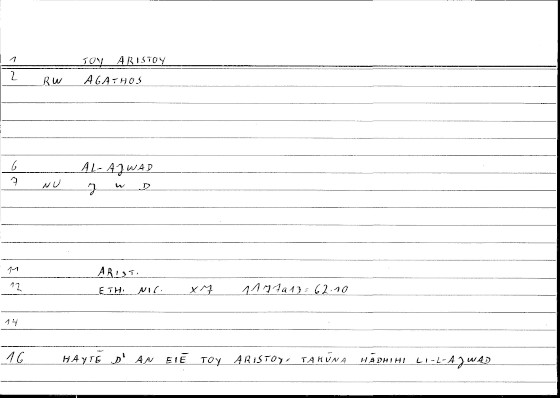 1 TOY ARISTOY
2 RW AGATHOS
6 AL-AJWAD
7 NU J W D
11 ARIST.
12 ETH. NIC. X7 1177a13 = 62.10
14
16 HAYTĒ D' AN EIĒ TOY ARISTOY. TAKŪNA HĀDHIHI LI-L-AJWAD